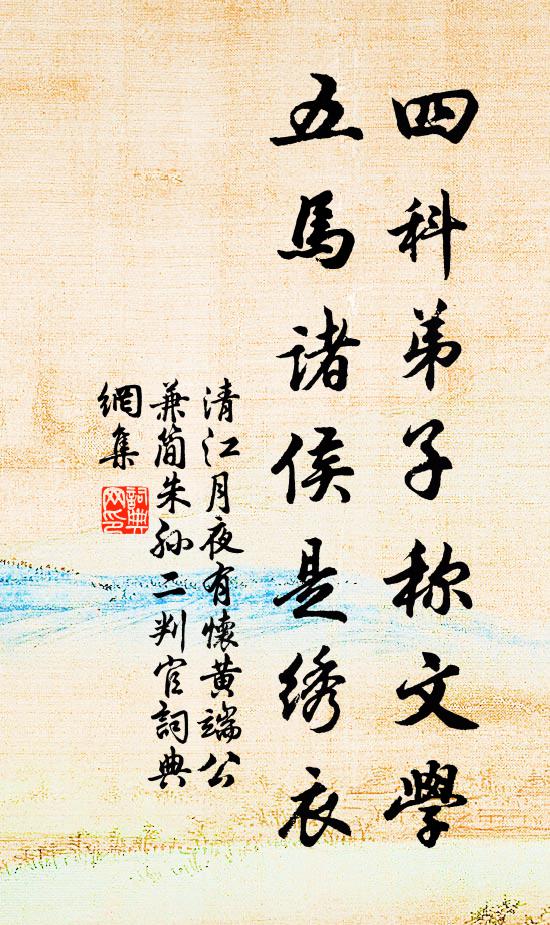 四科弟子称文學
五馬诸侯是绣衣
清江月夜有懷黄端公
兼简朱孙二判官詞典
網集
詞典
网印